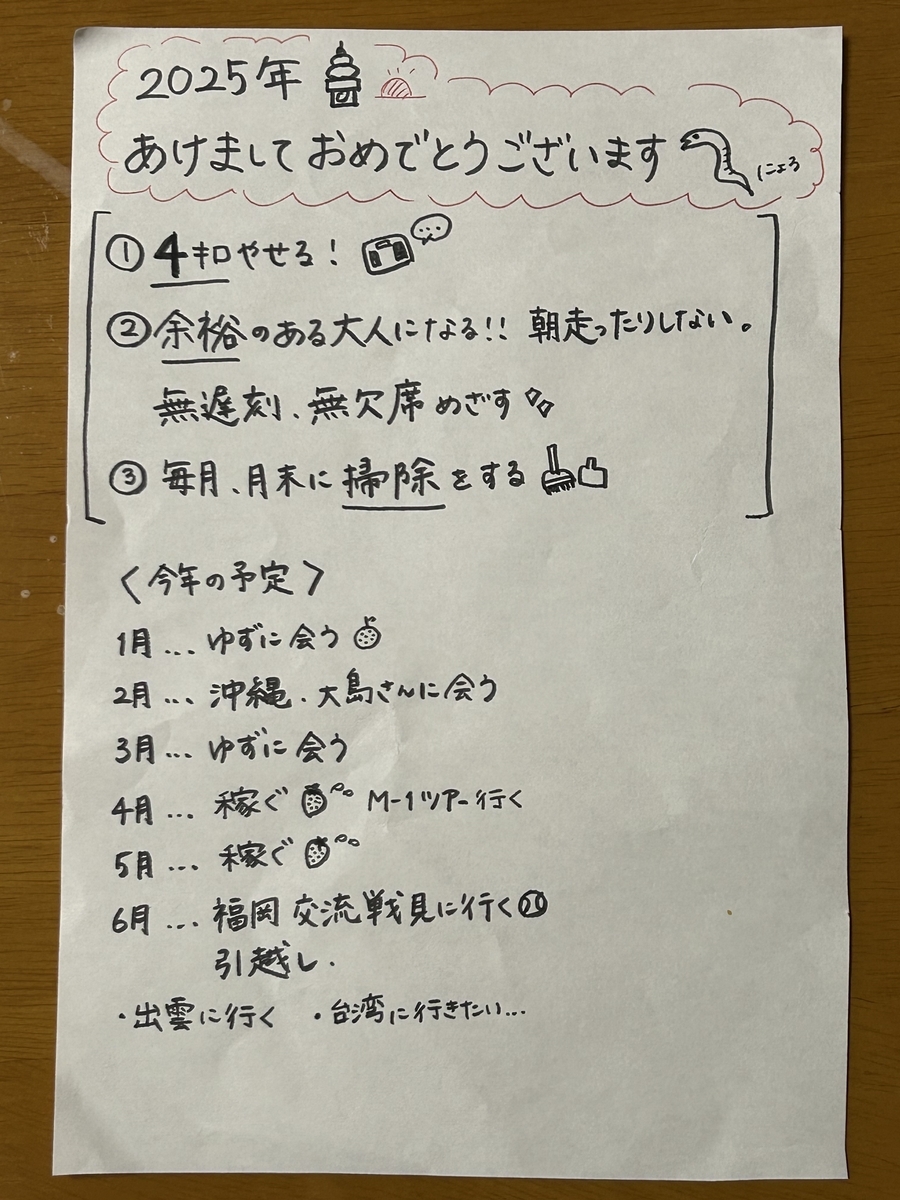 2025年
あけまして おめでとうございます
にょろ
① 4キロやせる!
② 余裕のある大人になる!! 朝走ったりしない。
無遅刻、無欠席めざす
③ 毎月、月末に掃除をする
〈今年の予定〉
1月 … ゆずに会う
2月 … 沖縄、大島さんに会う
3月 … ゆずに会う
4月 … 稼ぐ M-1ツアー行く
5月 … 稼ぐ
6月 … 福岡 交流戦見に行く
引越し.
・出雲に行く ・台湾に行きたい…